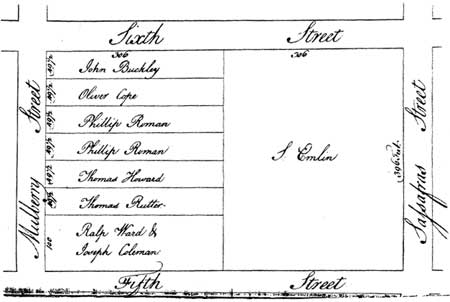 Sixth Street
306 306
Mulberry Street
49½ John Buckley
49½ Oliver Cope
49½ Phillip Roman
49½ Phillip Roman
49½ Thomas Howard
49½ Thomas Rutter
Ralp Ward &
Joseph Coleman
S Emlin
396
Sassafras Street
Fifth Street